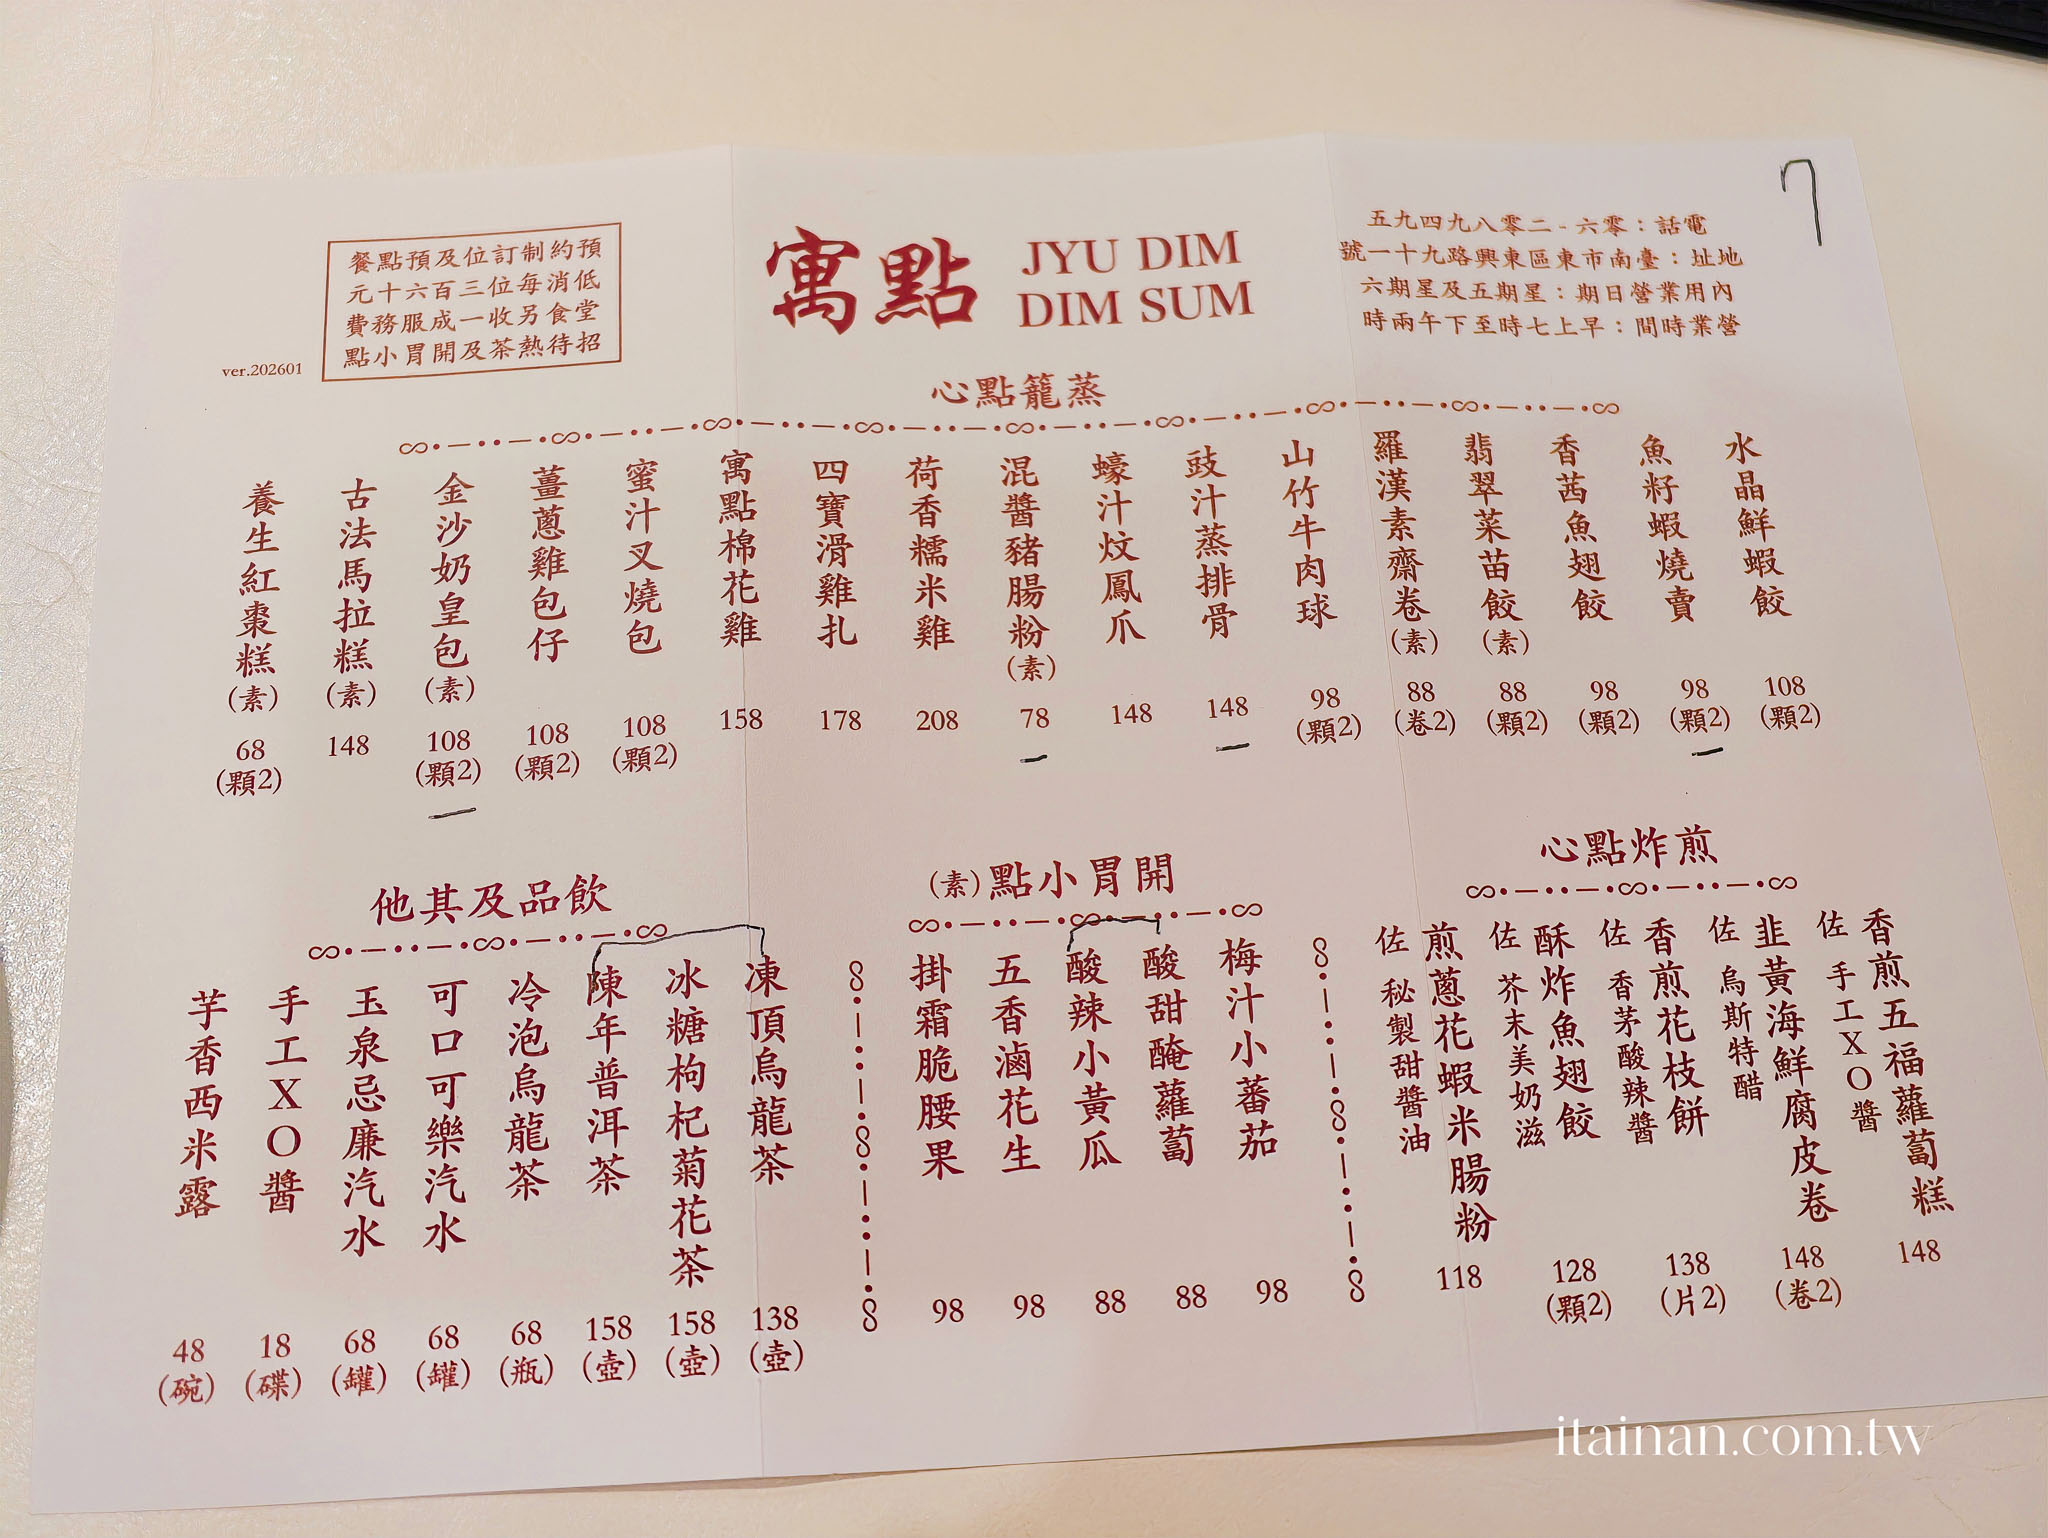 電話：零六-二零八九四九五
地址：臺南市東區東興路九十一號
內用營業日期：星期五及星期六
營業時間：早上七時至下午兩時
寓點
JYU DIM
DIM SUM
預約制訂位及預點餐
低消每位三百六十元
堂食另收一成服務費
招待熱茶及開胃小點
ver.202601
7
蒸籠點心
水晶鮮蝦餃 108 (2顆)
魚籽蝦燒賣 98 (2顆)
香茜魚翅餃 98 (2顆)
翡翠菜苗餃(素) 88 (2顆)
羅漢素齋卷(素) 88 (2卷)
山竹牛肉球 98 (2顆)
豉汁蒸排骨 148
蠔汁炆鳳爪 148
混醬豬腸粉(素) 78
荷香糯米雞 208
四寶滑雞扎 178
寓點棉花雞 158
蜜汁叉燒包 108 (2顆)
薑蔥雞包仔 108 (2顆)
金沙奶皇包(素) 108 (2顆)
古法馬拉糕(素) 148
養生紅棗糕(素) 68 (2顆)
煎炸點心
香煎五福蘿蔔糕 148
佐 手工XO醬
韭黃海鮮腐皮卷 148 (2卷)
佐 烏斯特醋
香煎花枝餅 138 (2片)
佐 香茅酸辣醬
酥炸魚翅餃 128 (2顆)
佐 芥末美奶滋
煎蔥花蝦米腸粉 118
佐 秘製甜醬油
開胃小點(素)
梅汁小蕃茄 98
酸甜醃蘿蔔 88
酸辣小黃瓜 88
五香滷花生 98
掛霜脆腰果 98
飲品及其他
凍頂烏龍茶 138 (壺)
冰糖枸杞菊花茶 158 (壺)
陳年普洱茶 158 (壺)
冷泡烏龍茶 68 (瓶)
可口可樂汽水 68 (罐)
玉泉忌廉汽水 68 (罐)
手工XO醬 18 (碟)
芋香西米露 48 (碗)
itainan.com.tw